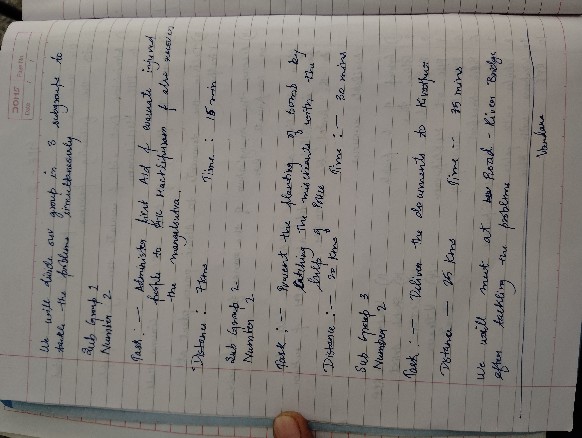 We will divide our group in 3 subgroups to
tackle the problems simultaneously
Sub Group 1
Number 2
Task :- Administer first Aid & evacuate injured
people to & also recover
the mangalsutra.
Distance : 7 kms Time : 15 min
Sub Group 2
Number 2
Task :- Prevent the planting of bomb by
catching the miscreants with the
help of Police
Distance :- 22 Kms Time :- 32 mins
Sub Group 3
Number 2
Task :- Deliver the documents to
Distance - 25 Kms Time - 35 mins
We will meet at Road - River Bridge
after tackling the problems
Vandana